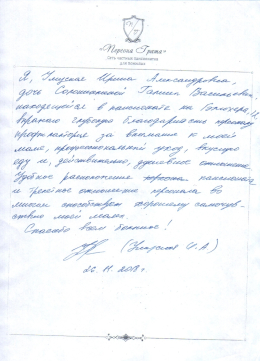 «Персона Грата»
Сеть частных пансионатов
для пожилых
Я, Ирина Александровна,
дочь Галины Васильевны,
находящейся в пансионате на
выражаю глубокую благодарность
за внимание к моей
маме, профессиональный уход, вкусную
еду и, действительно, душевное отношение.
Удобное расположение пансионата
и трепетное отношение персонала во
многом способствует хорошему самочув-
ствию моей мамы.
Спасибо всем большое!
26.11.2018 г.